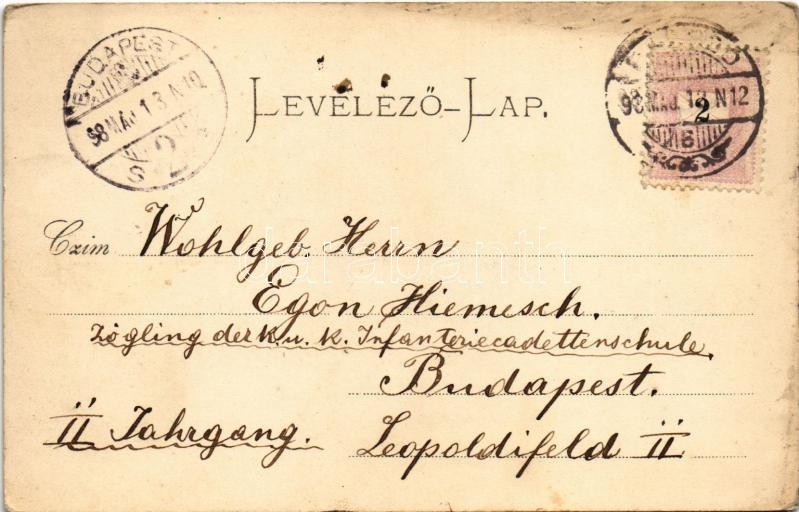 BUDAPEST
98 MÁJ 13 N12
2
LEVELEZŐ-LAP.
98 MÁJ 13 N12
2
Czim Wohlgeb. Herrn
Egon Hiemesch.
Zögling der k. u. k. Infanteriecadettenschule,
Budapest.
II Jahrgang. Leopoldifeld II
darabanth